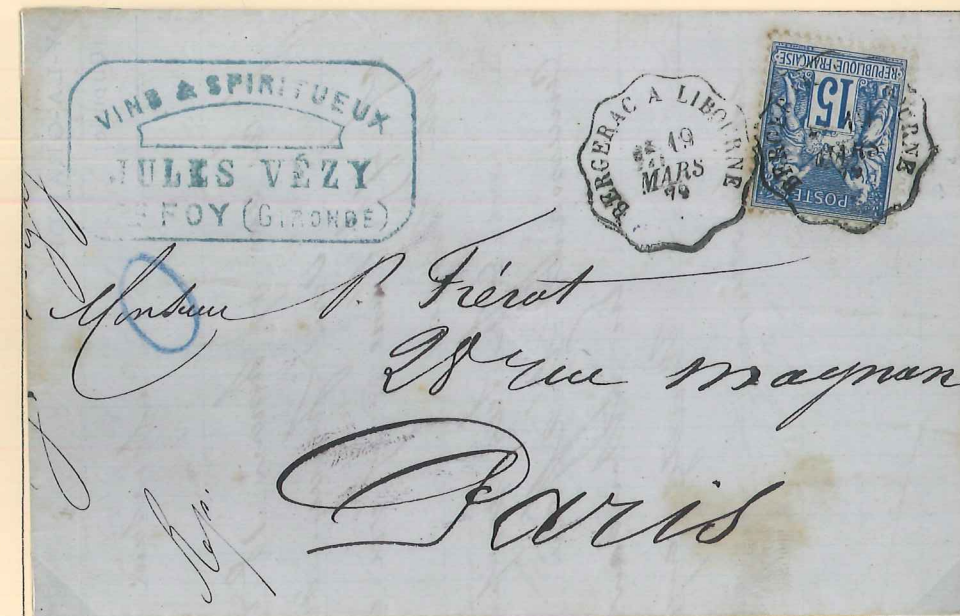 VINS & SPIRITUEUX
JULES VÉZY
FOY (GIRONDE)
BERGERAC A LIBOURNE
19
MARS
79
RÉPUBLIQUE FRANÇAISE
15
POSTE
Monsieur P. Frérot
28 rue Magnan
Paris
Rép.